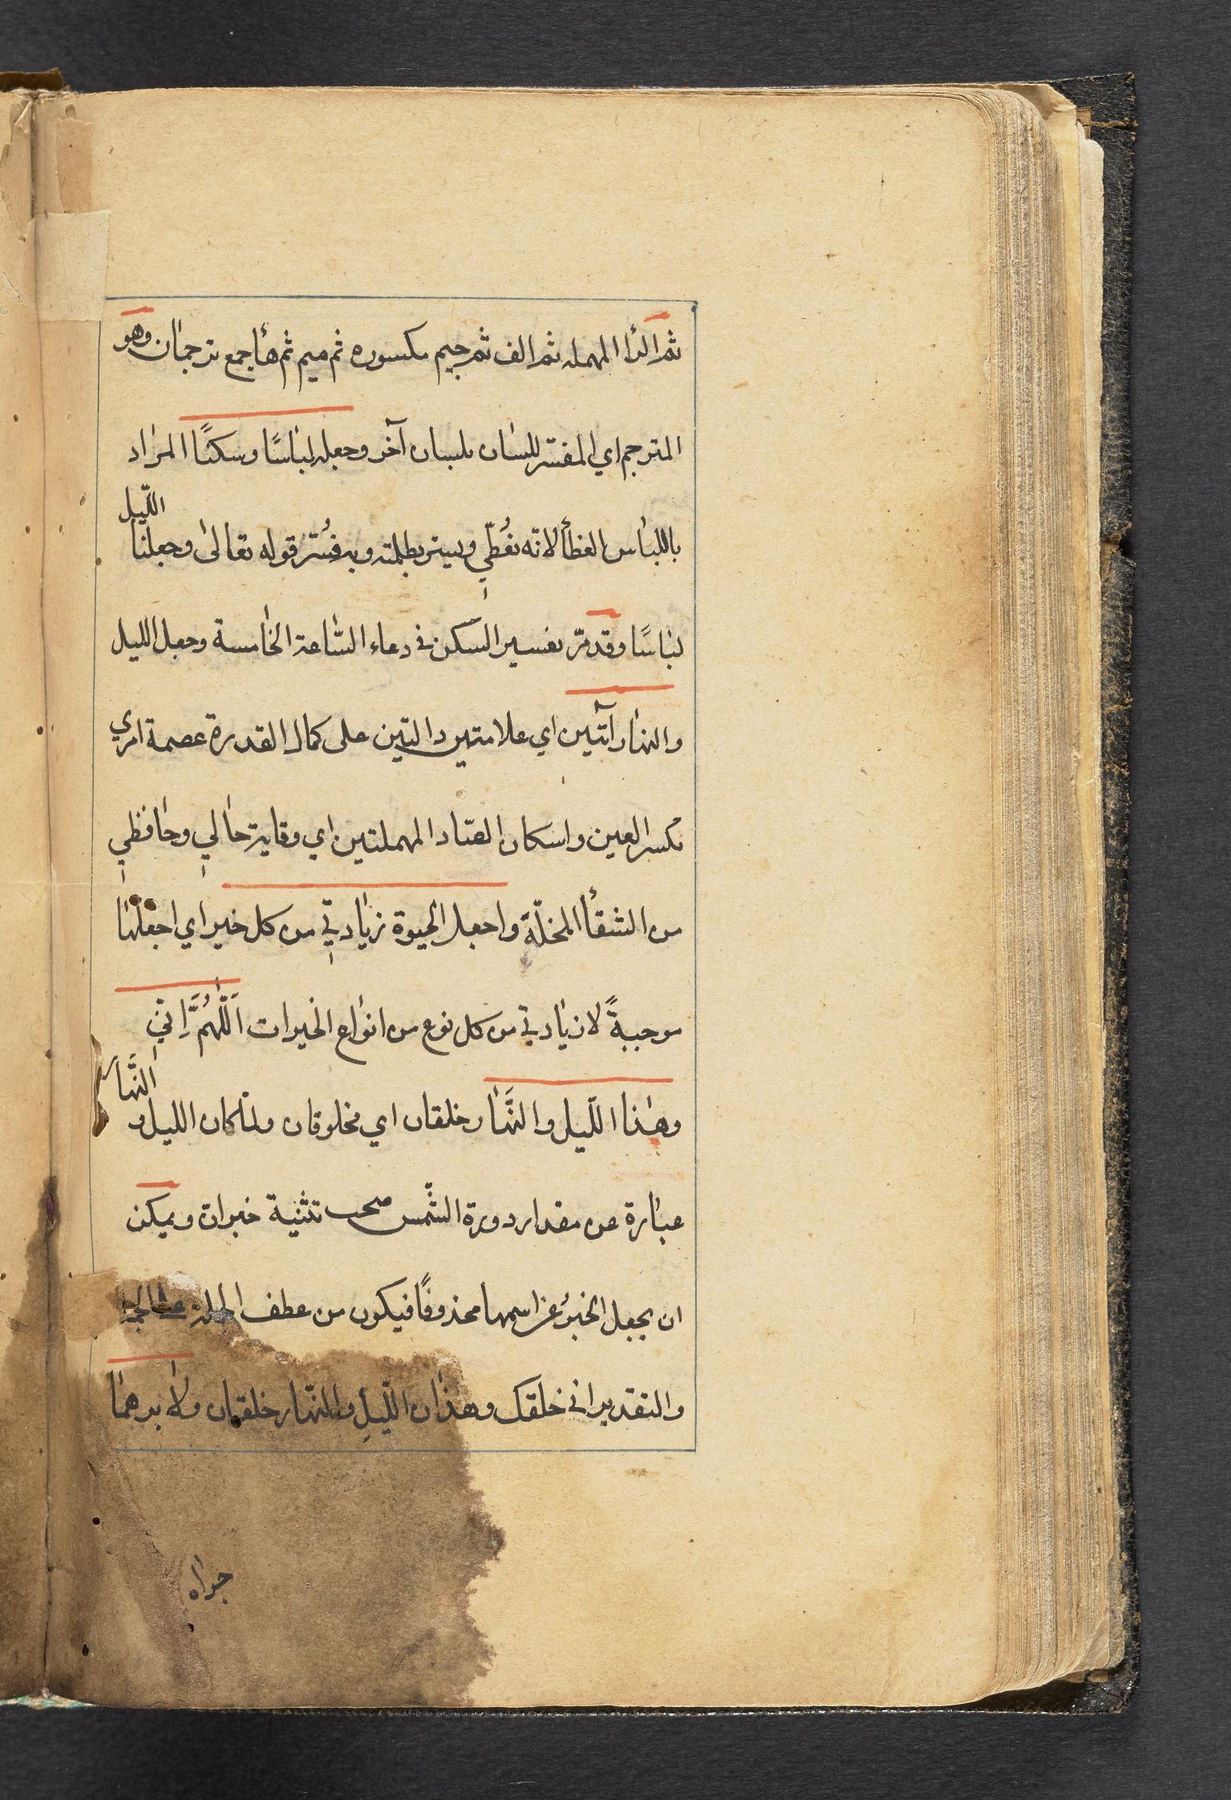 ثم الرا المهمله ثم الف ثم جيم مكسوره ثم ميم ثم هأ جمع ترجمان وهو
المترجم اي المفسّر للسان بلسان آخر وجعله لباسًا وسكنًا المراد
باللباس الغطأ لانه يغُطّي ويستر بظلمته وبه فُسّر قوله تعالى وجعلنا الليّل
لباسًا وقد مرّ تفسير السكن في دعاء السّاعة الخامسة وجعل الليل
والنهار آيتين اي علامتين دالتين على كمال القدرة عصمة امري
بكسر العين واسكان الصاد المهملتين اي وقاية حالي وحافظي
من الشقأ المخلّة واجعل الحيوة زيادة لي من كل خير اي اجعلها
موجبةً لازيادتي من كل نوع من انواع الخيرات اَللّهُمَّ اِنّي
وهذا اللّيل والنَّهار خلقان اي مخلوقان ولمّا كان الليل والنَّهار
عبارة عن مقدار دورة الشّمس صحب تثنية خبران ويمكن
ان يجعل الخبر عن اسمها محذوفًا فيكون من عطف الجملة على الجملة
والتقدير اني خلقك وهذان اللّيل والنّهار خلقان ولا برهما
جراه